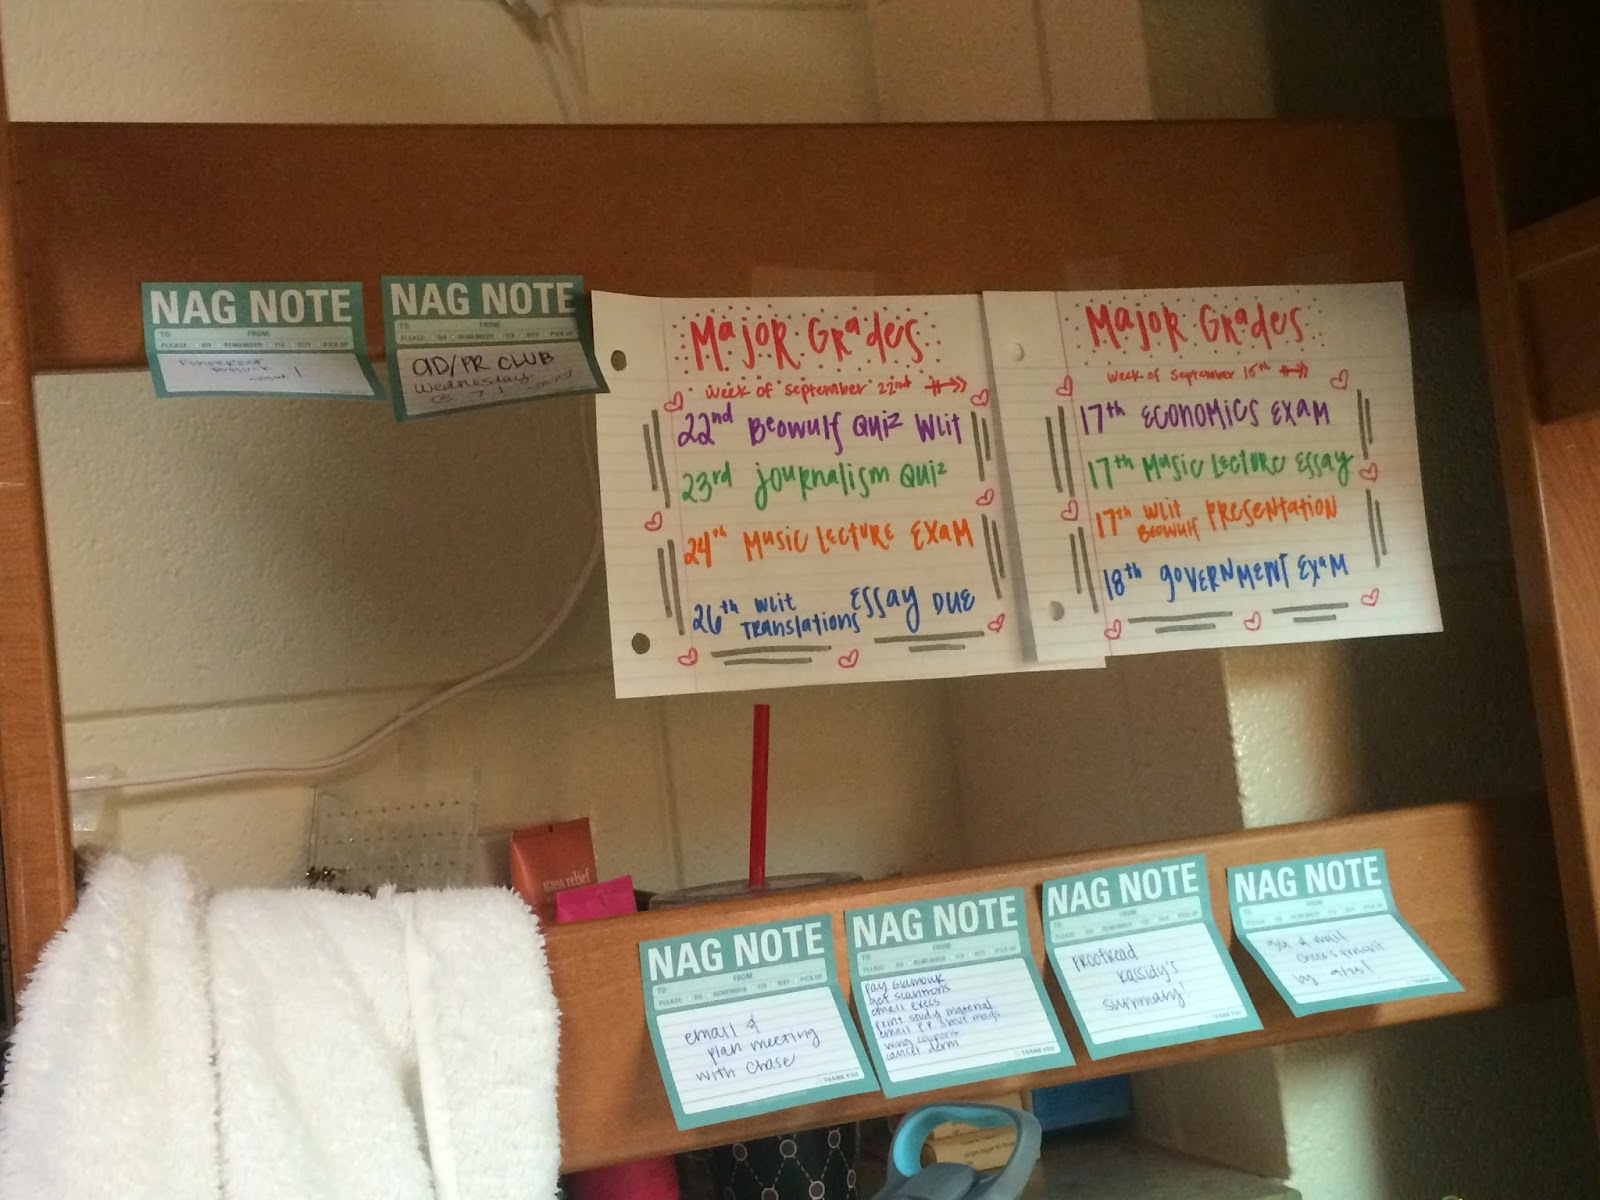 NAG NOTE
TO: FROM:
PLEASE DO REMEMBER FIX BUY PICK UP
NAG NOTE
TO: FROM:
PLEASE DO REMEMBER FIX BUY PICK UP
AD/PR CLUB
Wednesday
@ 7!
Major Grades
Week of September 22nd
22nd Beowulf Quiz Wlit
23rd Journalism Quiz
24th Music Lecture Exam
26th Wlit Translations Essay Due
Major Grades
Week of September 15th
17th Economics Exam
17th Music Lecture Essay
17th Wlit Beowulf Presentation
18th Government Exam
stress relief
NAG NOTE
TO: FROM
PLEASE DO REMEMBER FIX BUY PICK UP
email &
plan meeting
with Chase
THANK YOU
NAG NOTE
TO: FROM
PLEASE DO REMEMBER FIX BUY PICK UP
pay Glamour
get scantrons
email execs
print study material
email P.R. about mags
coupons
cancel derm
THANK YOU
NAG NOTE
TO: FROM
PLEASE DO REMEMBER FIX BUY PICK UP
Proofread
Kassidy's
summary!
THANK YOU
NAG NOTE
TO: FROM
PLEASE DO REMEMBER FIX BUY PICK UP
& mail
present
by 9/25!
THANK YOU